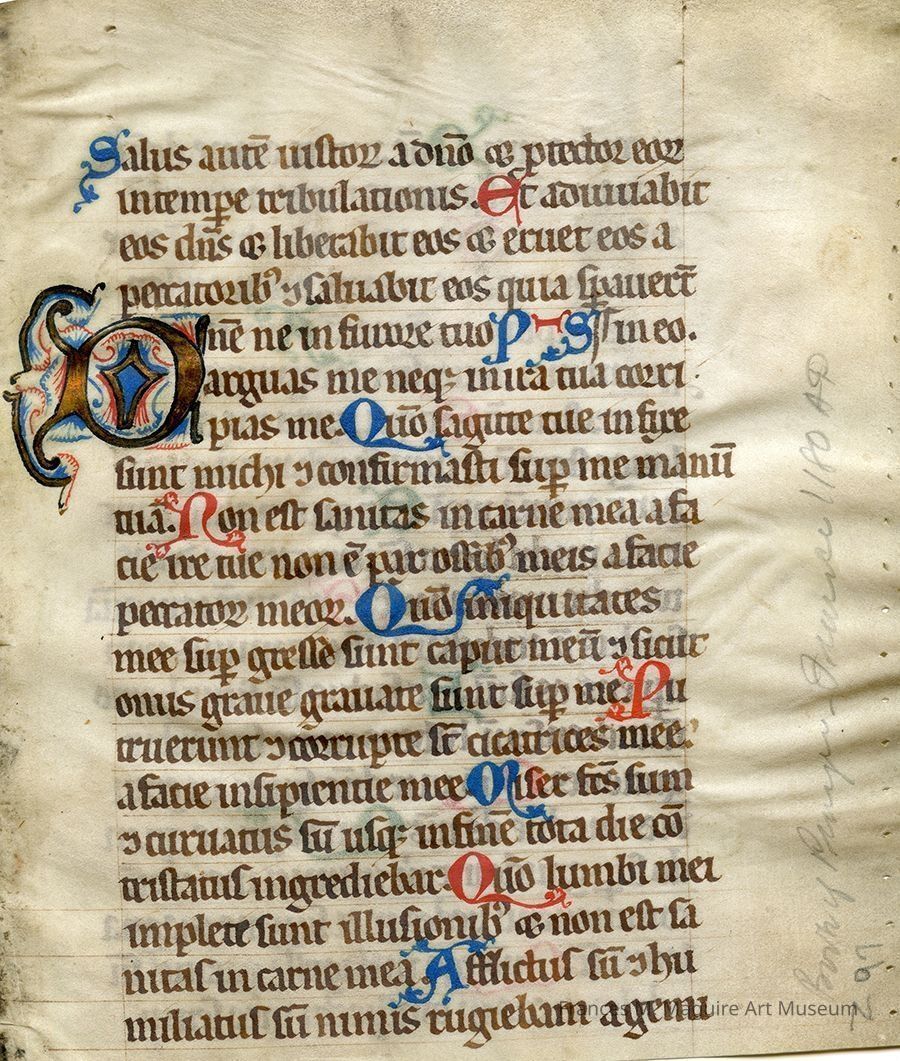 Salus autē iustoꝝ a dn̄o ⁊ ꝓtector eoꝝ
in tempe tribulationis. Et adiuuabit
eos dn̄s ⁊ liberabit eos ⁊ eruet eos a
peccatoribꝰ ⁊ saluabit eos quia spauert̄
Dn̄e ne in furore tuo PS in eo.
arguas me neqꝫ in ira tua corri
pias me. Qm̄o sagitte tue infixe
sunt michi ⁊ confirmasti sup me manū
tuā. Non est sanitas in carne mea a fa
cie ire tue non ē pax ossibꝰ meis a facie
peccatoꝝ meoꝝ. Qm̄o iniquitates
mee sup gresse sunt caput meū ⁊ sicut
onus graue grauate sunt sup me. Pu
truerunt ⁊ corrupte st̄ cicatrices mee
a facie insipientie mee Miser fc̄s sum
⁊ curuatus sū usqꝫ in finē tota die cō
tristatus ingrediebar. Qm̄o lumbi mei
implete sunt illusionibꝰ ⁊ non est sa
nitas in carne mea. Afflictus sū ⁊ hu
miliatus sū nimis rugiebam a gemi
Frances M. Maguire Art Museum
97